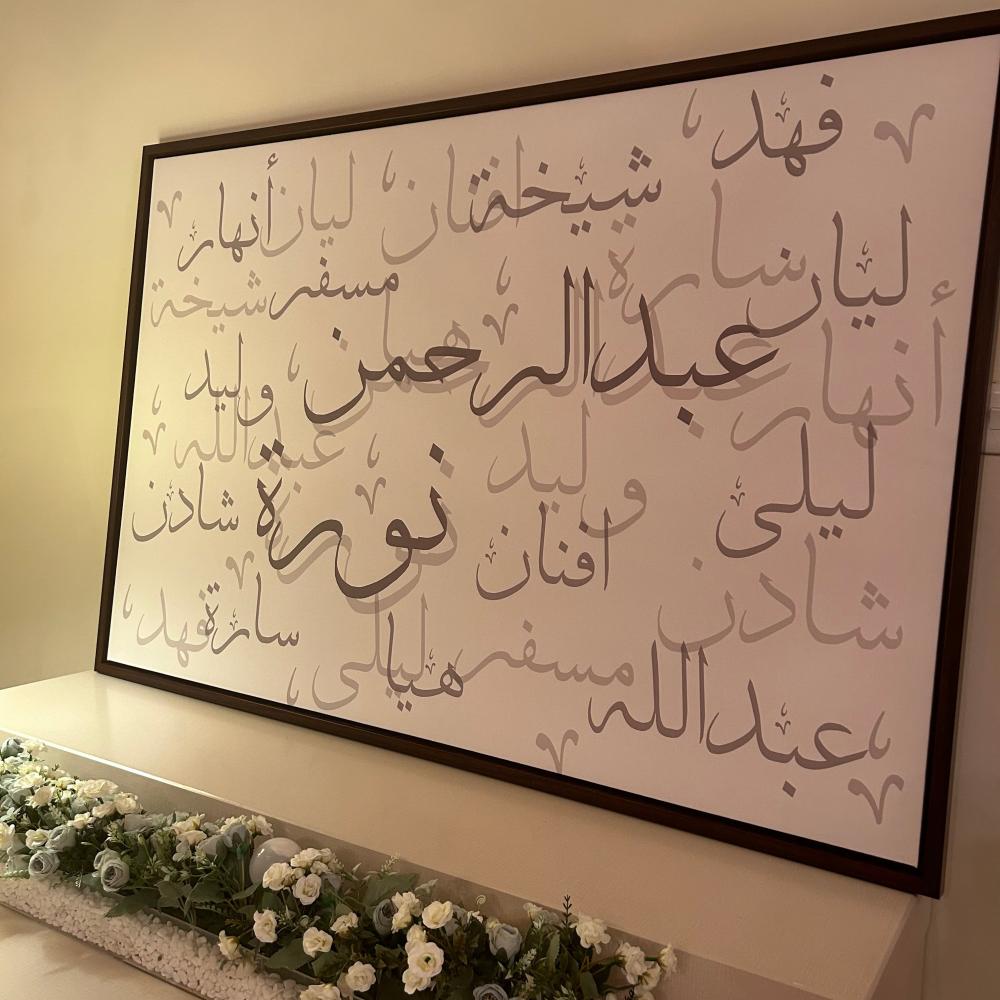 فهد
شيخة افنان ليان أنهار
ليان سارة
مسفر شيخة
عبدالرحمن هيا
أنهار وليد
ليلى وليد عبدالله
نورة
افنان شادن
شادن
سارة فهد
هيا ليلى مسفر
عبدالله